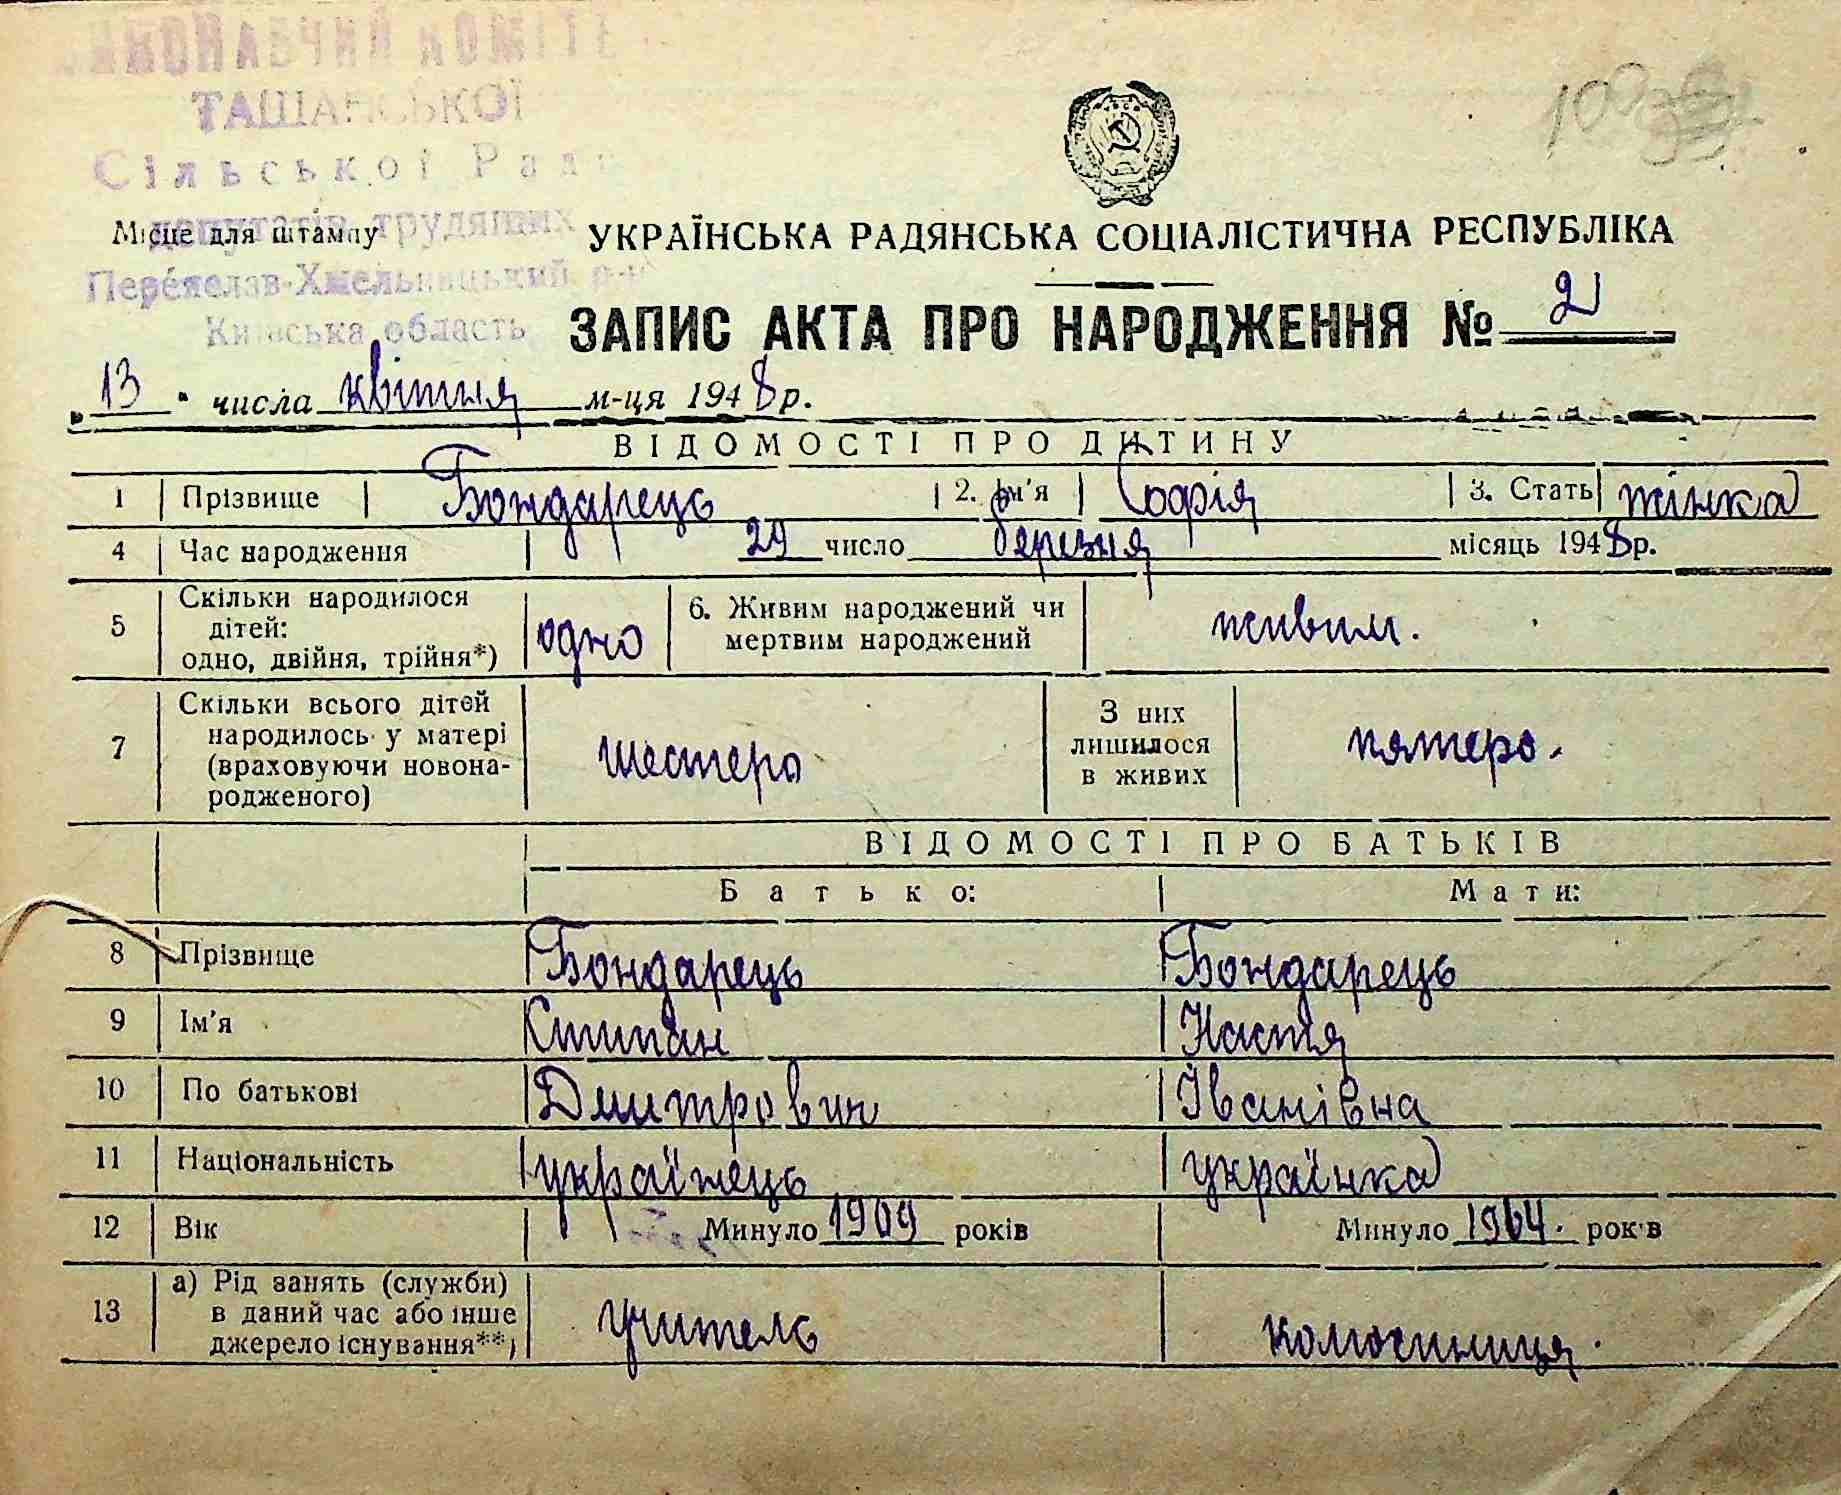 ВИКОНАВЧИЙ КОМІТЕ
ТАШАНСЬКОЇ
Сільської Рад
депутатів трудящих
Місце для штампу
Переяслав-Хмельницький р-н
Київська область
УКРАЇНСЬКА РАДЯНСЬКА СОЦІАЛІСТИЧНА РЕСПУБЛІКА
ЗАПИС АКТА ПРО НАРОДЖЕННЯ № 21
„13" числа квітня м-ця 1948 р.
ВІДОМОСТІ ПРО ДИТИНУ
1 Прізвище Бондарець 2. Ім'я Софія 3. Стать жінка
4 Час народження 29 число березня місяць 1948 р.
5 Скільки народилося дітей: одно, двійня, трійня*) одно 6. Живим народжений чи мертвим народжений живим.
7 Скільки всього дітей народилось у матері (враховуючи новонародженого) шестеро З них лишилося в живих пятеро.
ВІДОМОСТІ ПРО БАТЬКІВ
Батько: Мати:
8 Прізвище Бондарець Бондарець
9 Ім'я Стипан Настя
10 По батькові Дмитрович Іванівна
11 Національність українець українка
12 Вік Минуло 1909 років Минуло років
13 а) Рід занять (служби) в даний час або інше джерело існування**) учитель колгоспниця.